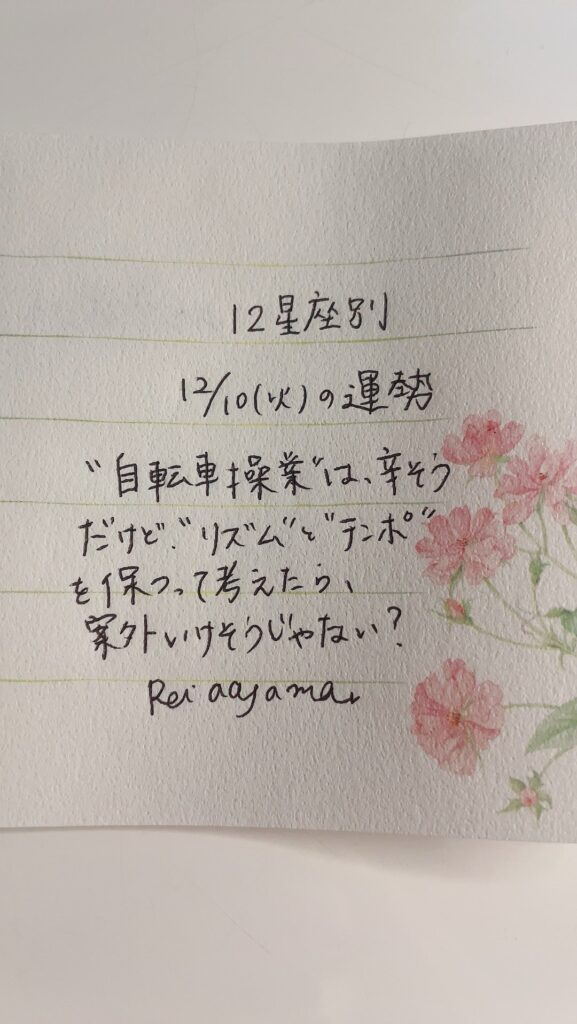 12星座別
12/10(火)の運勢
“自転車操業”は、辛そう
だけど、“リズム”と“テンポ”
を保つって考えたら、
案外いけそうじゃない？
Rei aoyama